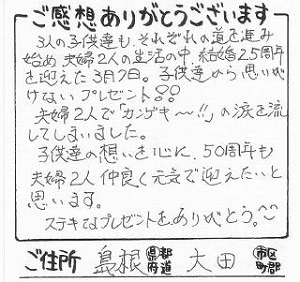 ご感想ありがとうございます
3人の子供達も、それぞれの道を進み
始め夫婦2人の生活の中、結婚25周年
を迎えた3月7日。子供達から思いが
けないプレゼント!!
夫婦2人で「カンゲキ〜!!」の涙を流
してしまいました。
子供達の想いを心に、50周年も
夫婦2人仲良く元気で迎えたいと
思います。
ステキなプレゼントをありがとう。^^
ご住所 島根 都道府県 大田 市区町郡